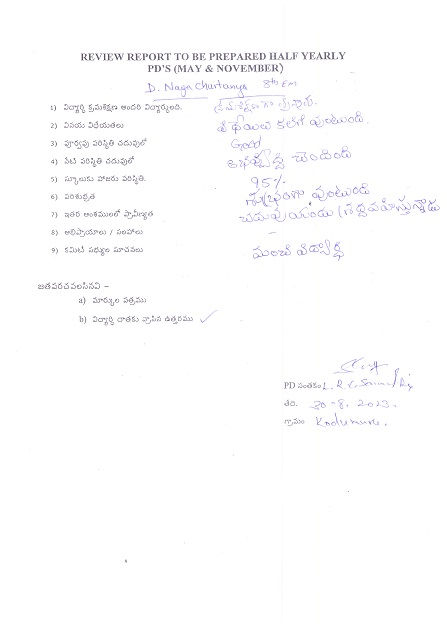 REVIEW REPORT TO BE PREPARED HALF YEARLY
PD'S (MAY & NOVEMBER)
D. Naga Chaitanya 8th EM
1) విద్యార్థి క్రమశిక్షణ అందరి విద్యార్థులది.
2) వినయ విధేయతలు కలిగి వుంటుంది
3) పూర్వపు పరిస్థితి చదువులో Good
4) నేటి పరిస్థితి చదువులో అభివృద్ధి చెందింది
5) స్కూలుకు హాజరు పరిస్థితి. 95%
6) పరిశుభ్రత శుభ్రంగా వుంటుంది
7) ఇతర అంశములలో ప్రావీణ్యత
8) అభిప్రాయాలు / సలహాలు –
9) కమిటీ సభ్యుల సూచనలు మంచి విద్యార్థి
జతపరచవలసినవి –
a) మార్కుల పత్రము
b) విద్యార్థి దాతకు వ్రాసిన ఉత్తరము ✓
PD సంతకం
తేది. 30-8-2023.
గ్రామం Kodumuru.